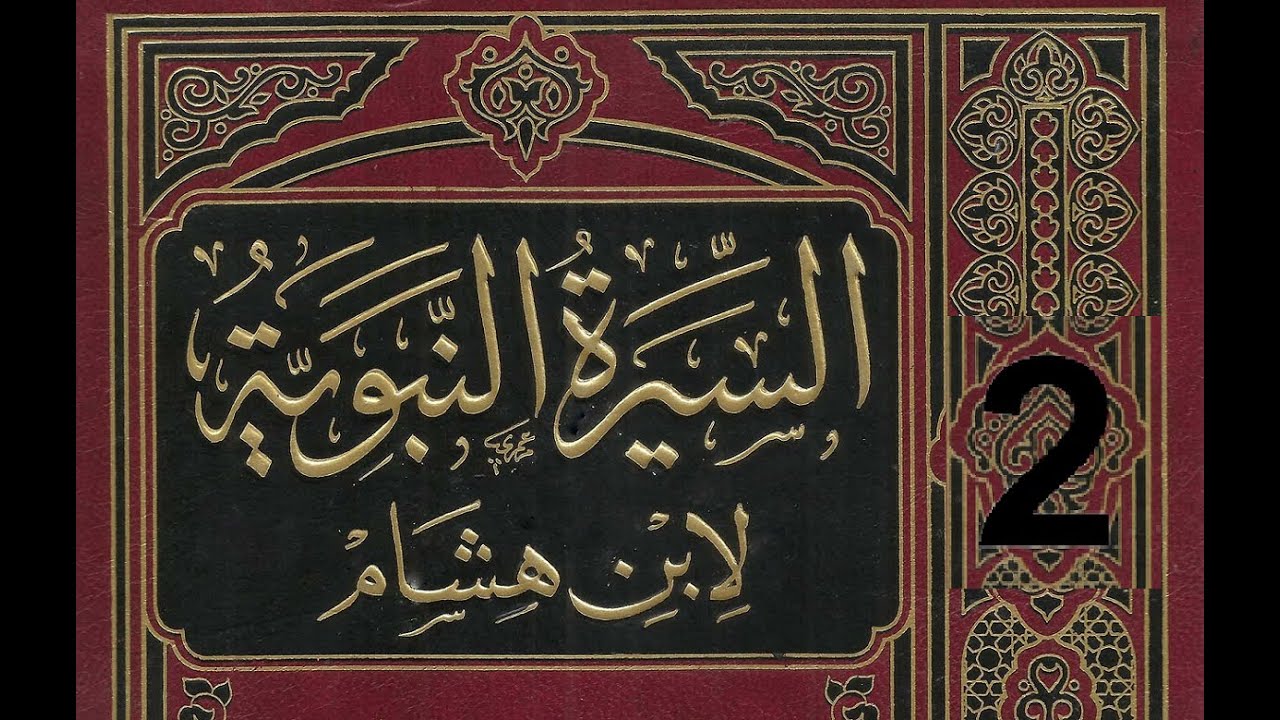 السِّيرَةُ النَّبَوِيَّةُ
لِابْنِ هِشَامْ
2